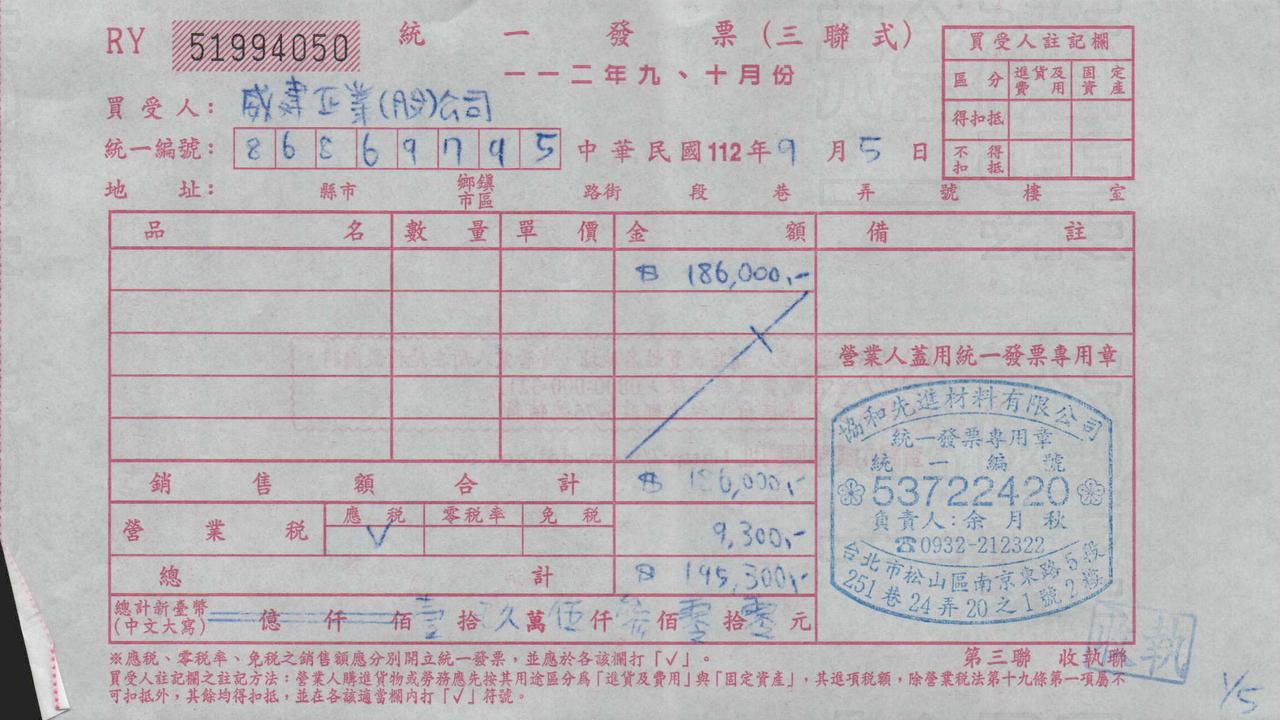 RY 51994050 統一發票(三聯式)
一一二年九、十月份
買受人註記欄
區分 進貨及費用 固定資產
得扣抵
不得扣抵
買受人: 威建企業(股)公司
統一編號: 8 6 8 6 9 7 9 5 中華民國112年9月5日
地址: 縣市 鄉鎮市區 路街 段 巷 弄 號 樓 室
品名 數量 單價 金額 備註
186,000,-
營業人蓋用統一發票專用章
銷售額合計 186,000,-
營業稅 應稅 零稅率 免稅
✓ 9,300,-
總計 195,300,-
總計新臺幣(中文大寫) 億 仟 佰 壹拾玖萬伍仟叁佰零拾零元
協和先進材料有限公司
統一發票專用章
統一編號
53722420
負責人:余月秋
☎0932-212322
台北市松山區南京東路5段
251巷24弄20之1號2樓
※應稅、零稅率、免稅之銷售額應分別開立統一發票,並應於各該欄打「✓」。
第三聯 收執聯
收執
買受人註記欄之註記方法:營業人購進貨物或勞務應先按其用途區分爲「進貨及費用」與「固定資產」,其進項稅額,除營業稅法第十九條第一項屬不
可扣抵外,其餘均得扣抵,並在各該適當欄內打「✓」符號。
1/5